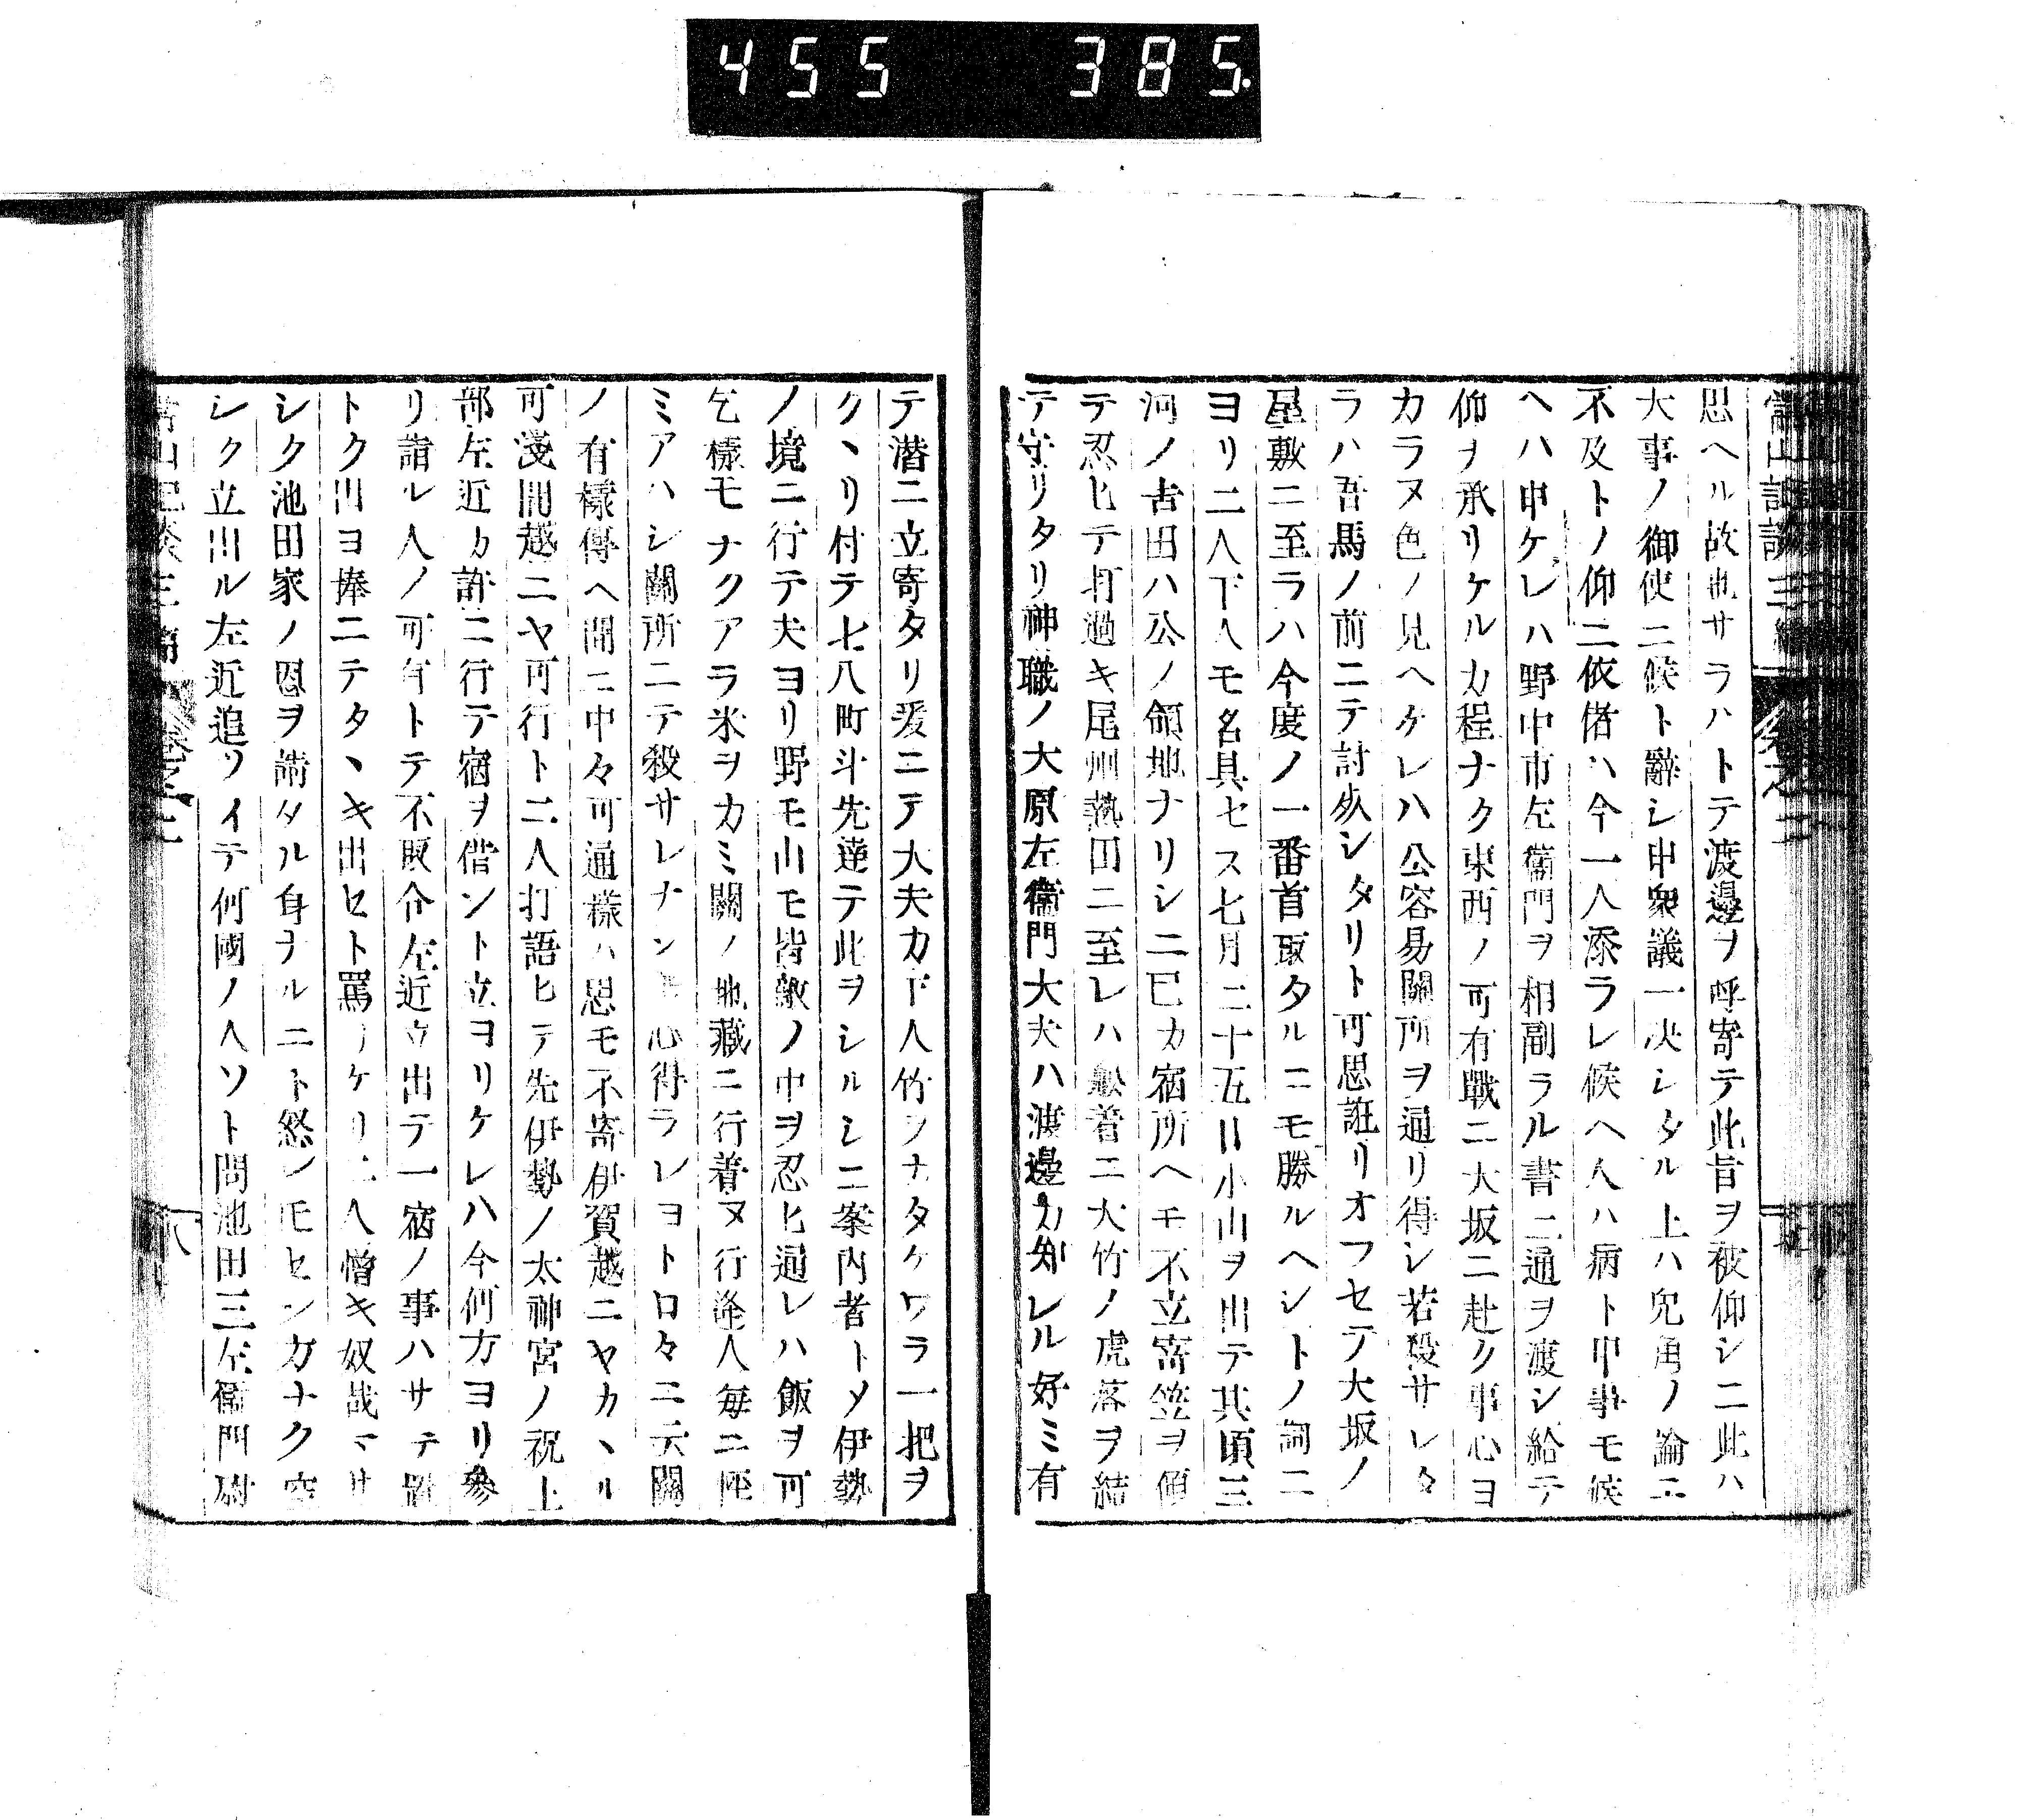 455 385
思ヘル故也サラハトテ渡邉ヲ呼寄テ此旨ヲ被仰シニ此ハ
大事ノ御使ニ候ト辭シ申衆議一决シタル上ハ兎角ノ論ニ
不及トノ仰ニ依偖ハ今一人添ラレ候ヘ人ハ病ト申事モ候
ヘハ申ケレハ野中市左衛門ヲ相副ラル書二通ヲ渡シ給テ
仰ヲ承リケルカ程ナク東西ノ可有戰ニ大坂ニ赴ク事心ヨ
カラヌ色ノ見ヘケレハ公容易關所ヲ通リ得シ若殺サレタ
ラハ吾馬ノ前ニテ討死シタリト可思誰リオフセテ大坂ノ
屋敷ニ至ラハ今度ノ一番首取タルニモ勝ルヘシトノ詞ニ
ヨリ二人下人モ名具セス七月二十五日小山ヲ出テ其頃三
河ノ吉田ハ公ノ領地ナリシニ巳カ宿所ヘモ不立寄笠ヲ傾
テ忍ヒテ打過キ尾州熱田ニ至レハ舩着ニ大竹ノ虎落ヲ結
テ守リタリ神職ノ大原左衞門大夫ハ渡邊カ知レル好ミ有
テ潜ニ立寄タリ爰ニテ大夫カ下人竹ヲナタケワラ一把ヲ
クヽリ付テ七八町斗先達テ此ヲシルシニ案内者トメ伊勢
ノ境ニ行テ夫ヨリ野モ山モ皆敵ノ中ヲ忍ヒ通レハ飯ヲ可
乞樣モナクアラ米ヲカミ關ノ地藏ニ行着ヌ行逢人毎ニ
ミアハシ關所ニテ殺サレナン心得ラレヨトロ々ニ云關
ノ有樣傳ヘ聞ニ中々可通樣ハ思モ不寄伊賀越ニヤカヽル
可淺間越ニヤ可行ト二人打語ヒテ先伊勢ノ太神宮ノ祝上
部左近カ許ニ行テ宿ヲ借ント立ヨリケレハ今何方ヨリ參
リ詣ル人ノ可有トテ不取合左近立出テ一宿ノ事ハサテ置
トク出ヨ捧ニテタヽキ出セト罵リケリ二人憎キ奴哉マサ
シク池田家ノ恩ヲ蒙タル身ナルニト怒シモセンカナク空
シク立出ル左近追ツイテ何國ノ人ソト問池田三左衞門尉